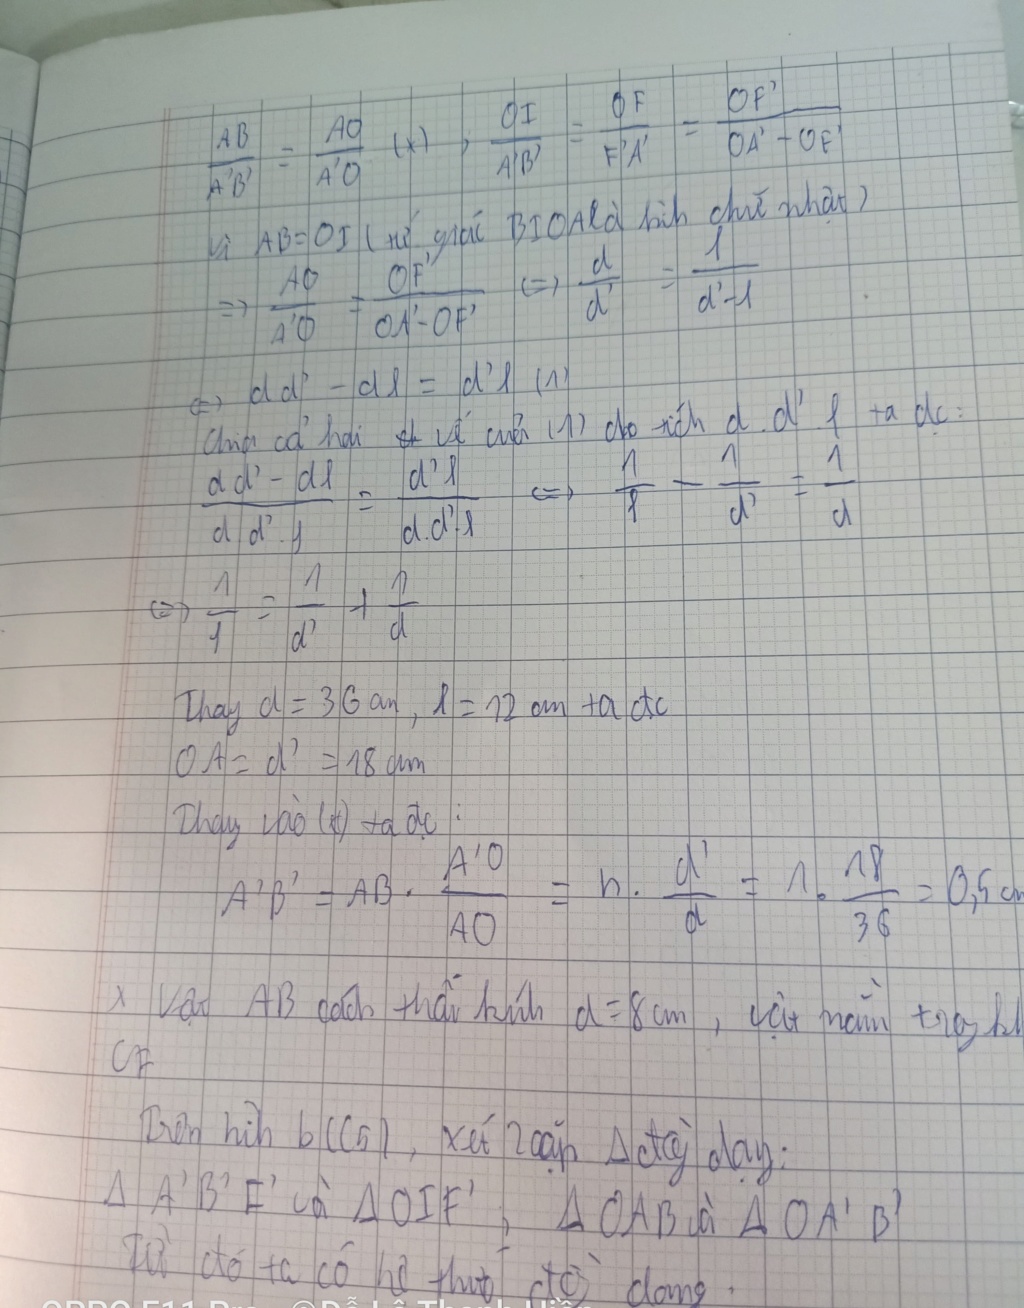 AB/A'B' = AO/A'O (*), OI/A'B' = OF/F'A' = OF'/OA' - OF'
Vì AB=OI (tứ giác BIOA là hình chữ nhật)
=> AO/A'O = OF'/OA'-OF' <=> d/d' = f/d'-f
<=> dd' - df = d'f (1)
Chia cả hai vế của (1) cho tích d.d'.f ta đc:
dd' - df/d.d'.f = d'f/d.d'.f <=> 1/f - 1/d' = 1/d
<=> 1/f = 1/d' + 1/d
Thay d = 36 cm, f = 12 cm ta đc
OA = d' = 18 cm
Thay vào (*) ta đc:
A'B' = AB. A'O/AO = h. d'/d = 1. 18/36 = 0,5 cm
x Vật AB cách thấu kính d = 8cm, vật nằm trong
Trên hình b, xét 2 cặp Δ đồng dạng:
Δ A'B'F' và Δ OIF'; Δ OAB và Δ OA'B'
Từ đó ta có hệ thức đồng dạng.